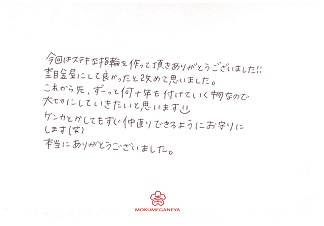 今回はステキな指輪を作って頂きありがとうございました!!
杢目金屋にして良かったと改めて思いました。
これから先、ずーっと何十年も付けていく物なので
大切にしていきたいと思います
ケンカとかしてもすぐ仲直りできるようにお守りに
します(笑)
本当にありがとうございました。
MOKUMEGANEYA